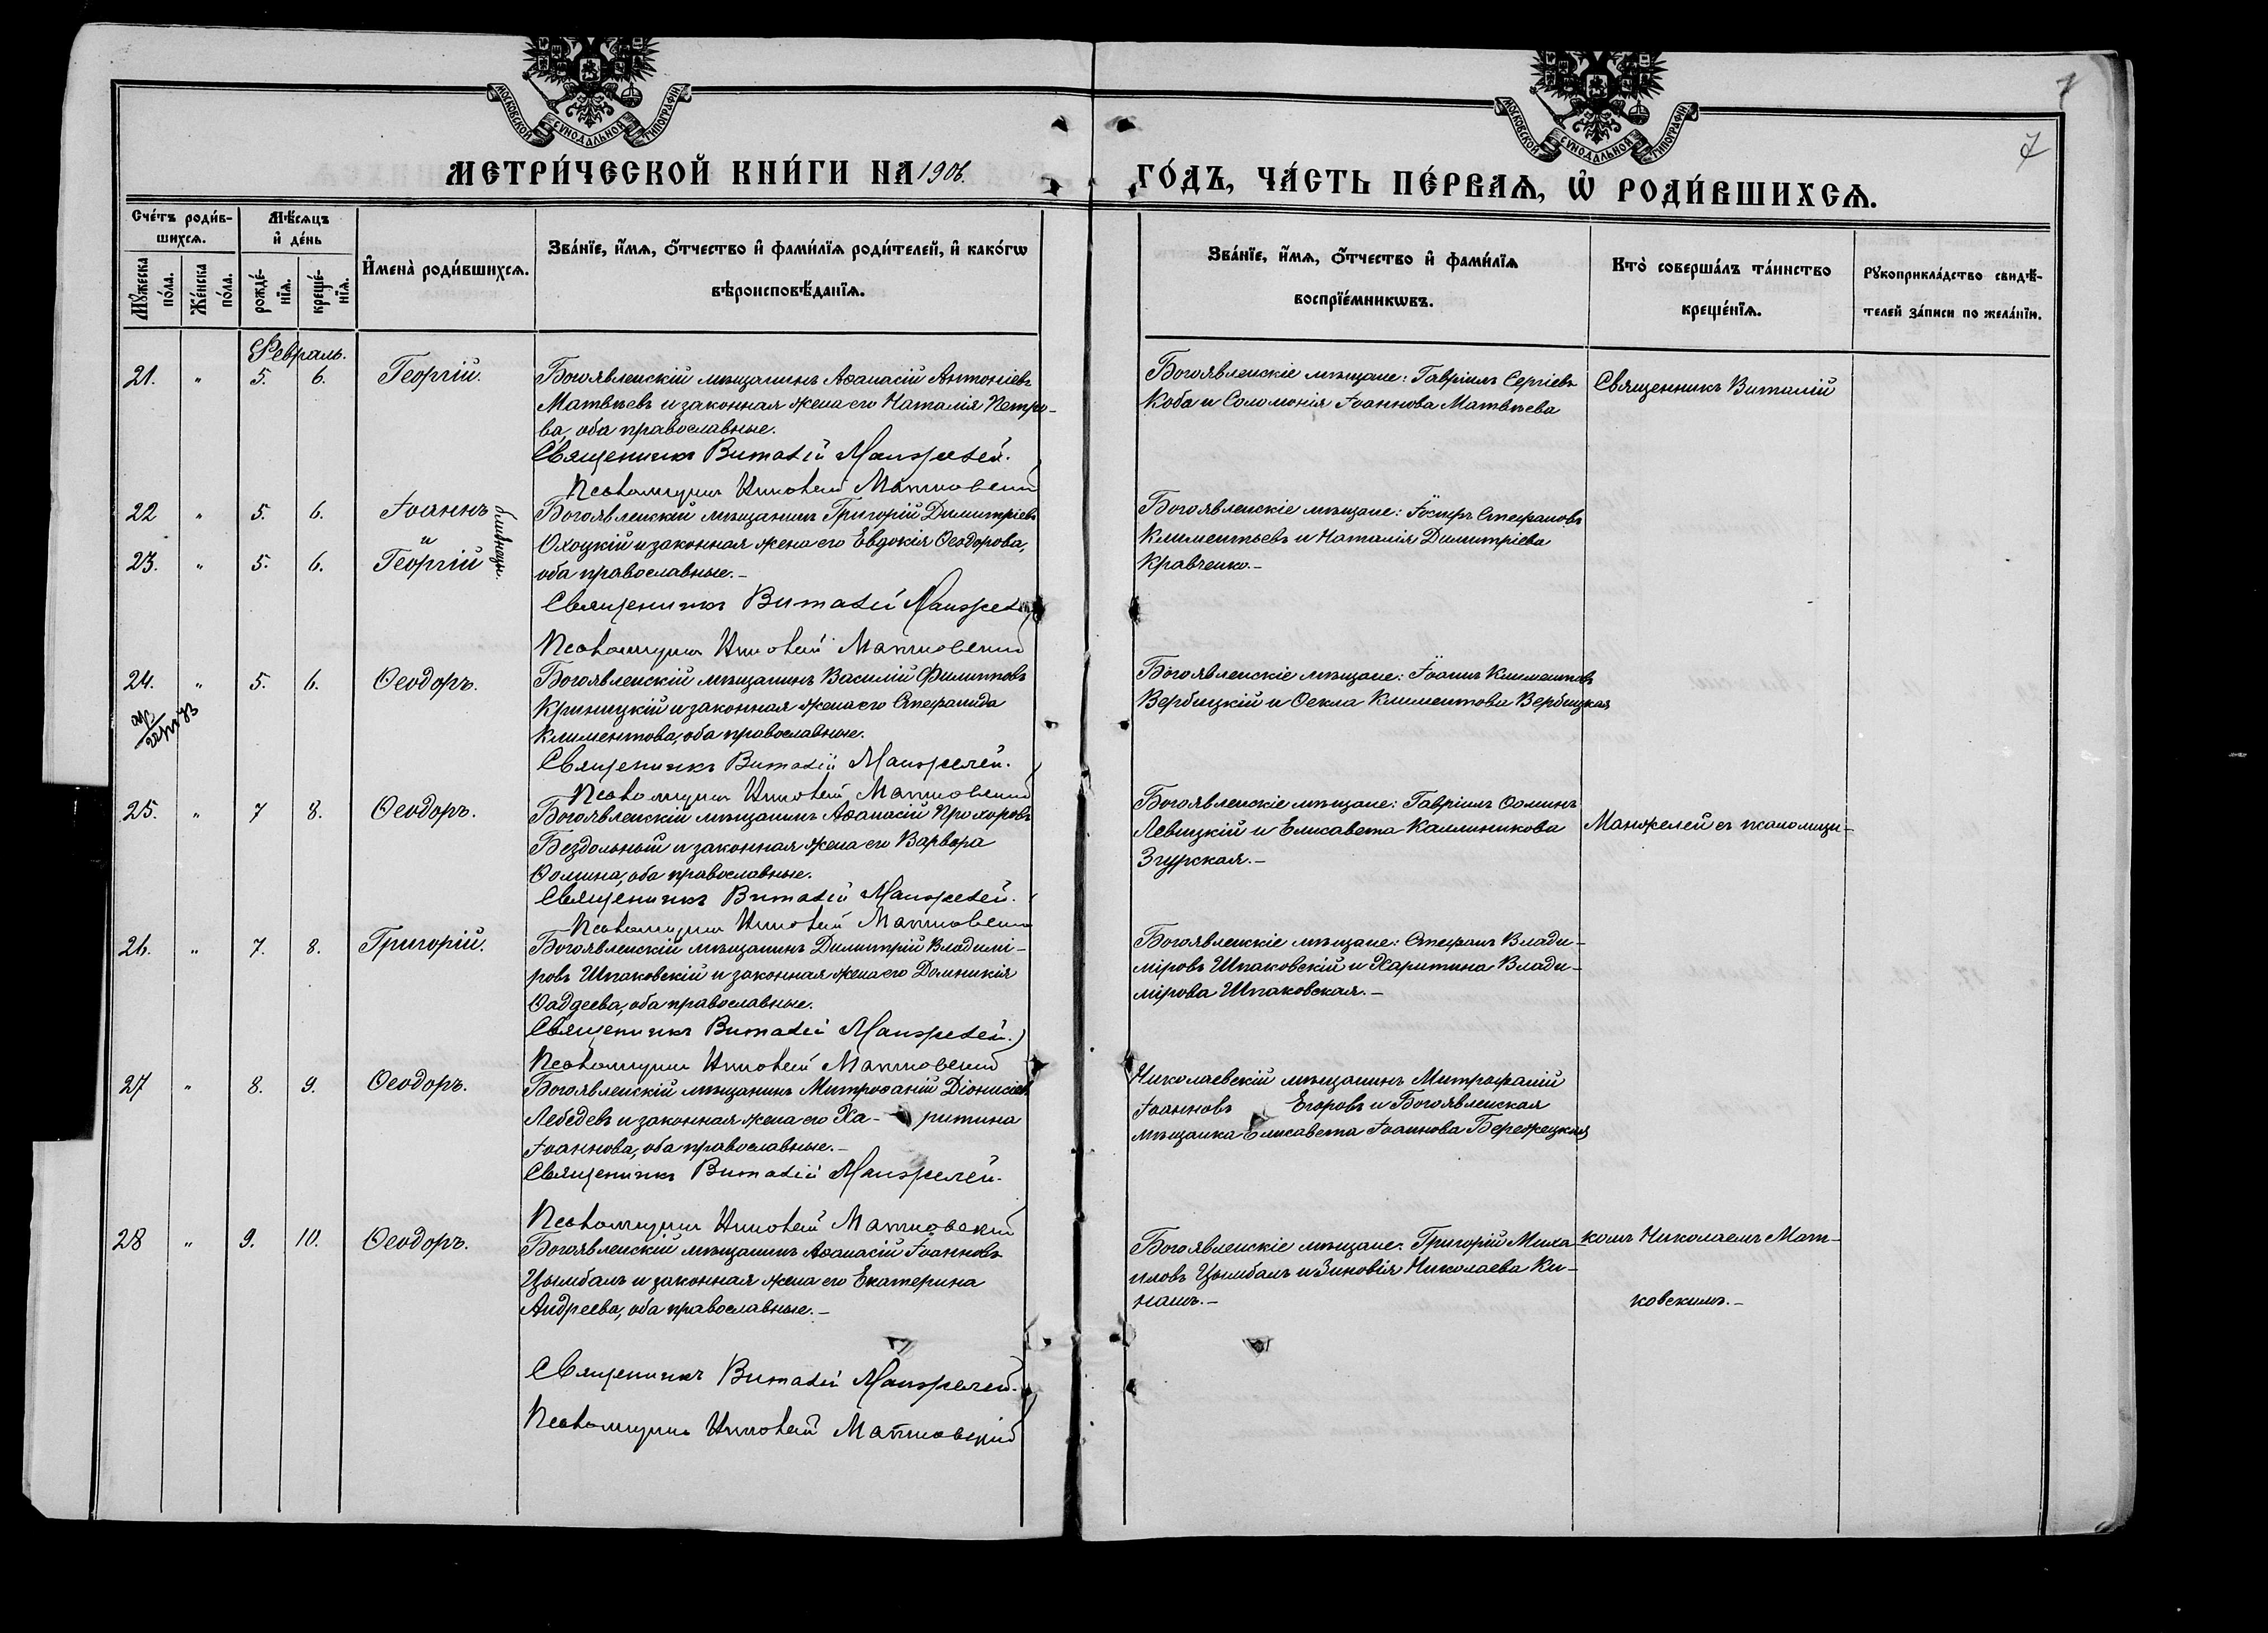 МОСКОВСКОЙ СѴНОДАЛЬНОЙ ТИПОГРАФІИ
МОСКОВСКОЙ СѴНОДАЛЬНОЙ ТИПОГРАФІИ
7
МЕТРИ́ЧЕСКОЙ КНИ́ГИ НА 1906.
ГО́ДЪ, ЧА́СТЬ ПЕ́РВАѦ, Ѡ҆ РОДИ́ВШИХСѦ.
Сче́тъ роди́в-
шихсѧ.
Мѣ́сѧцъ
и҆ де́нь
Мꙋ́жеска
по́ла.
Же́нска
по́ла.
рожде́-
нїѧ.
креще́-
нїѧ.
И҆мена̀ роди́вшихсѧ.
Зва́нїе, и҆́мѧ, ѻ҆́тчество и҆ фами́лїѧ роди́телей, и҆ како́гѡ
вѣроисповѣ́данїѧ.
Зва́нїе, и҆́мѧ, ѻ҆́тчество и҆ фами́лїѧ
воспрїе́мникѡвъ.
Кто̀ соверша́лъ та́инство
креще́нїѧ.
Рꙋкоприкла́дство свидѣ́-
телей за́писи по жела́нїю.
Февраль.
21. " 5. 6. Георгій.
Богоявленскій мѣщанинъ Аѳанасій Антоніевъ
Матвѣевъ и законная жена его Наталія Петро-
ва, оба православные.
Священникъ Виталій Манжелей.
Псаломщикъ Николай Матковскій
Богоявленскіе мѣщане: Гавріилъ Сергіевъ
Коба и Соломонія Іоаннова Матвѣева
Священникъ Виталій
22 " 5. 6. Іоаннъ
и
23. " 5. 6. Георгій
близнецы.
Богоявленскій мѣщанинъ Григорій Димитріевъ
Охоцкій и законная жена его Евдокія Ѳеодорова,
оба православные.-
Священникъ Виталій Манжелей
Псаломщикъ Николай Матковскій
Богоявленскіе мѣщане: Іосифъ Стефановъ
Климентьевъ и Наталія Димитріева
Кравченко.-
24. " 5. 6. Ѳеодоръ.
Богоявленскій мѣщанинъ Василій Филипповъ
Криницкій и законная жена его Стефанида
Климентова, оба православные.
Священникъ Виталій Манжелей.
Псаломщикъ Николай Матковскій
Богоявленскіе мѣщане: Іоаннъ Климентовъ
Вербицкій и Ѳекла Климентова Вербицкая
25. " 7 8. Ѳеодоръ.
Богоявленскій мѣщанинъ Аѳанасій Прохоровъ
Бездольный и законная жена его Варвара
Ѳомина, оба православные.
Священникъ Виталій Манжелей.
Псаломщикъ Николай Матковскій
Богоявленскіе мѣщане: Гавріилъ Ѳоминъ
Левицкій и Елисавета Каллиникова
Згурская.-
Манжелей съ псаломщи-
26. " 7. 8. Григорій.
Богоявленскій мѣщанинъ Димитрій Владимі-
ровъ Шпаковскій и законная жена его Домникія
Ѳаддеева, оба православные.
Священникъ Виталій Манжелей.
Псаломщикъ Николай Матковскій
Богоявленскіе мѣщане: Стефанъ Влади-
міровъ Шпаковскій и Харитина Влади-
мірова Шпаковская.-
27 " 8. 9. Ѳеодоръ.
Богоявленскій мѣщанинъ Митрофаній Діонисіевъ
Лебедевъ и законная жена его Ха- ритина
Іоаннова, оба православные.-
Священникъ Виталій Манжелей.
Псаломщикъ Николай Матковскій
Николаевскій мѣщанинъ Митрофаній
Іоанновъ Егоровъ и Богоявленская
мѣщанка Елисавета Іоаннова Бережецкая
28 " 9. 10. Ѳеодоръ.
Богоявленскій мѣщанинъ Аѳанасій Іоанновъ
Цымбалъ и законная жена его Екатерина
Андреева, оба православные.-
Священникъ Виталій Манжелей.
Псаломщикъ Николай Матковскій
Богоявленскіе мѣщане: Григорій Миха-
иловъ Цымбалъ и Зиновія Николаева Ки-
нашъ.-
комъ Николаемъ Мат-
ковскимъ.-